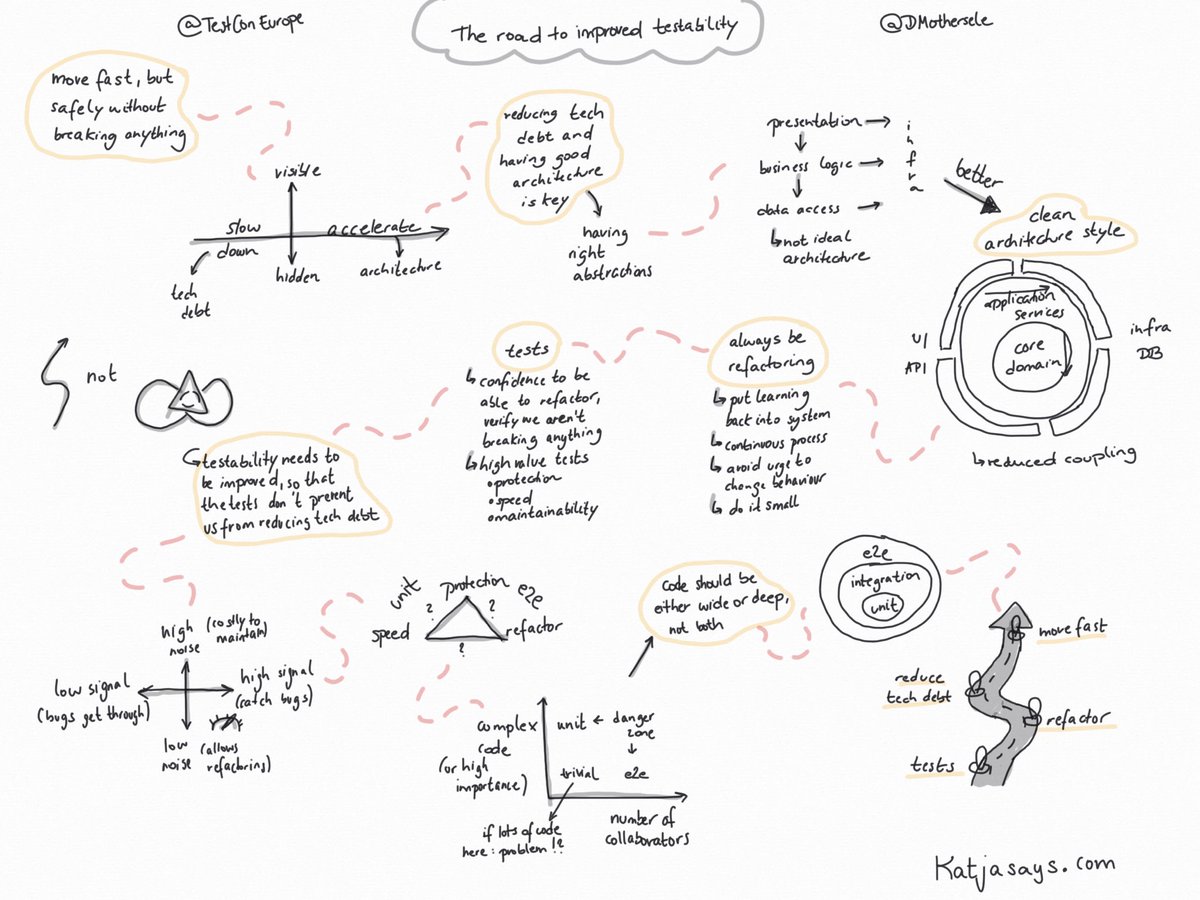 @TestConEurope
The road to improved testability
@DMothersele
move fast, but
safely without
breaking anything
visible
slow
down
accelerate
hidden
tech
debt
architecture
reducing tech
debt and
having good
architecture
is key
having
right
abstractions
presentation
business logic
data access
infra
not ideal
architecture
better
clean
architecture style
application
services
core
domain
UI
API
infra
DB
reduced coupling
always be
refactoring
put learning
back into system
continuous process
avoid urge to
change behaviour
do it small
tests
confidence to be
able to refactor,
verify we aren't
breaking anything
high value tests
•protection
•speed
•maintainability
not
testability needs to
be improved, so that
the tests don't prevent
us from reducing tech debt
high
noise
(costly to
maintain)
low signal
(bugs get through)
high signal
(catch bugs)
low
noise
(allows
refactoring)
unit
protection
e2e
?
?
speed
refactor
?
complex
code
(or high
importance)
unit ← danger
zone
trivial
e2e
if lots of code
here: problem!?
number of
collaborators
code should be
either wide or deep,
not both
e2e
integration
unit
move fast
reduce
tech debt
refactor
tests
Katjasays.com